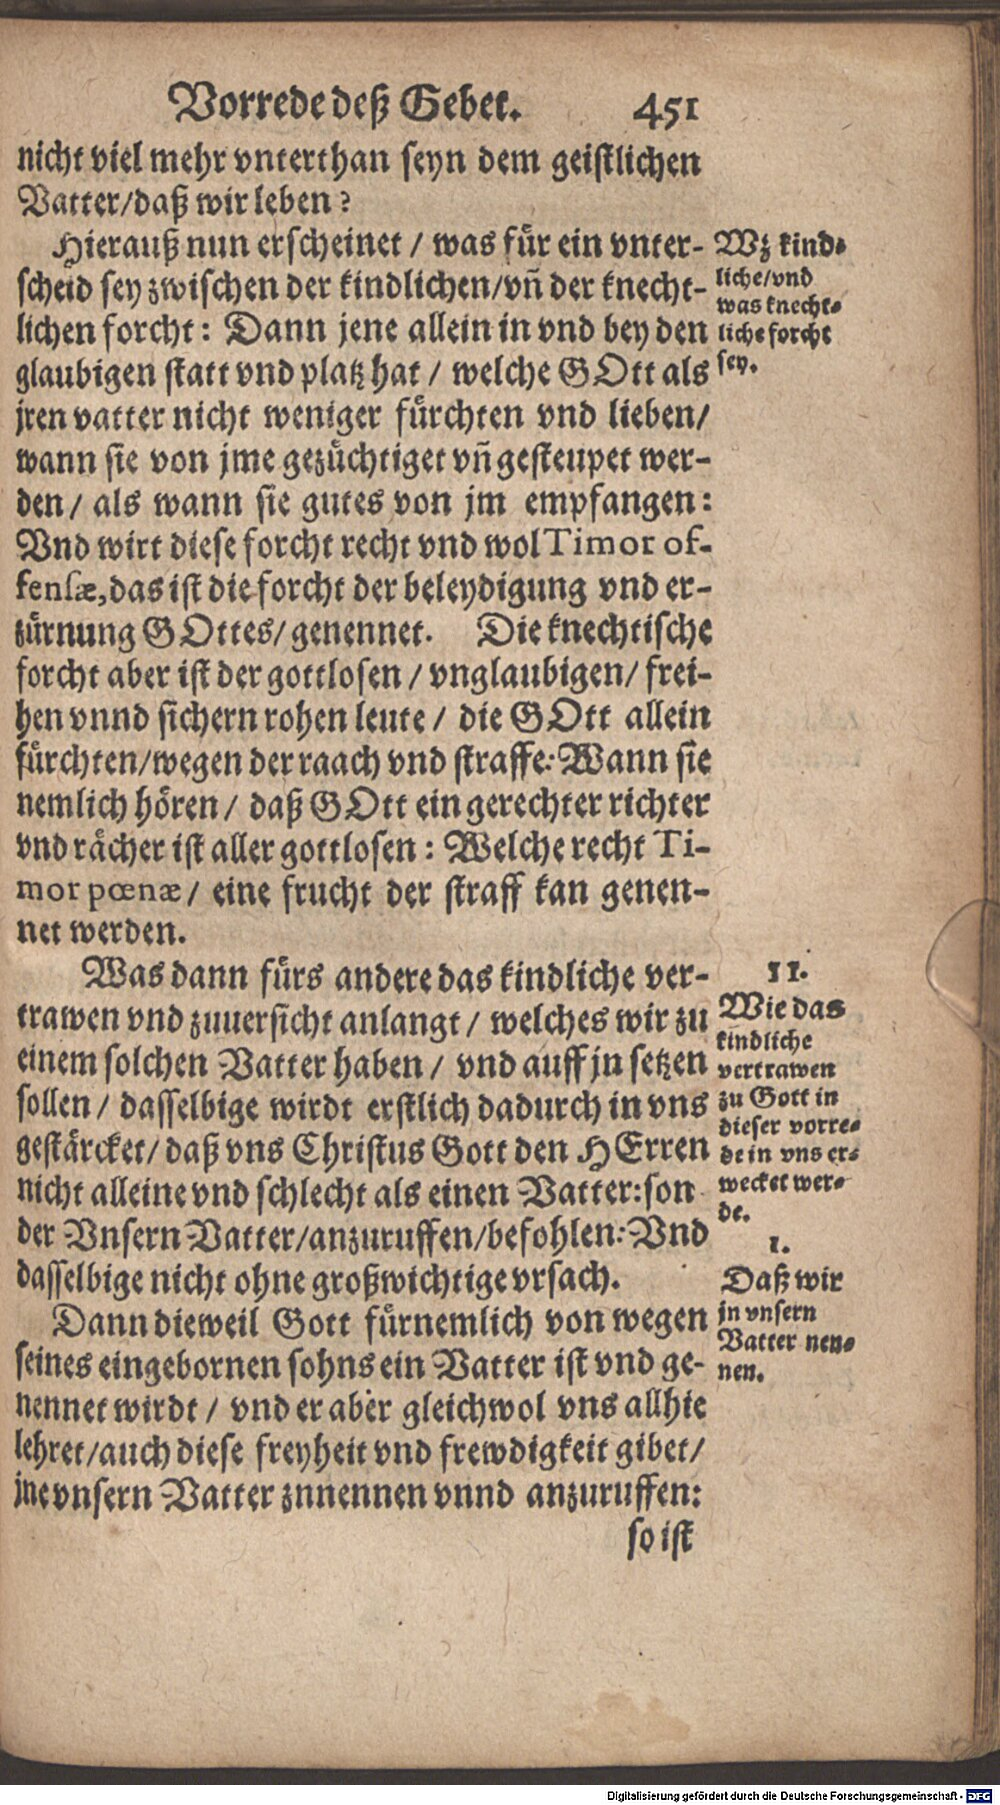 Vorrede deß Gebet. 451
nicht viel mehr vnterthan seyn dem geistlichen
Vatter/daß wir leben?
Hierauß nun erscheinet / was für ein vnter-
scheid sey zwischen der kindlichen/vñ der knecht-
lichen forcht: Dann jene allein in vnd bey den
glaubigen statt vnd platz hat / welche GOtt als
jren vatter nicht weniger fürchten vnd lieben/
wann sie von jme gezüchtiget vñ gesteupet wer-
den / als wann sie gutes von jm empfangen:
Vnd wirt diese forcht recht vnd wol Timor of-
fensæ, das ist die forcht der beleydigung vnd er-
zürnung GOttes/ genennet. Die knechtische
forcht aber ist der gottlosen / vnglaubigen/ frei-
hen vnnd sichern rohen leute / die GOtt allein
fürchten/wegen der raach vnd straffe: Wann sie
nemlich hören / daß GOtt ein gerechter richter
vnd rächer ist aller gottlosen: Welche recht Ti-
mor pœnæ / eine frucht der straff kan genen-
net werden.
Was dann fürs andere das kindliche ver-
trawen vnd zuuersicht anlangt / welches wir zu
einem solchen Vatter haben / vnd auff jn setzen
sollen / dasselbige wirdt erstlich dadurch in vns
gestärcket/ daß vns Christus Gott den HErren
nicht alleine vnd schlecht als einen Vatter: son
der Vnsern Vatter/anzuruffen/befohlen: Vnd
dasselbige nicht ohne großwichtige vrsach.
Dann dieweil Gott fürnemlich von wegen
seines eingebornen sohns ein Vatter ist vnd ge-
nennet wirdt / vnd er aber gleichwol vns allhie
lehret/auch diese freyheit vnd frewdigkeit gibet/
jne vnsern Vatter znnennen vnnd anzuruffen:
so ist
Wz kind-
liche/vnd
was knecht-
liche forcht
sey.
II.
Wie das
kindliche
vertrawen
zu Gott in
dieser vorre-
de in vns er-
wecket wer-
de.
1.
Daß wir
jn vnsern
Vatter nen-
nen.
Digitalisierung gefördert durch die Deutsche Forschungsgemeinschaft - DFG